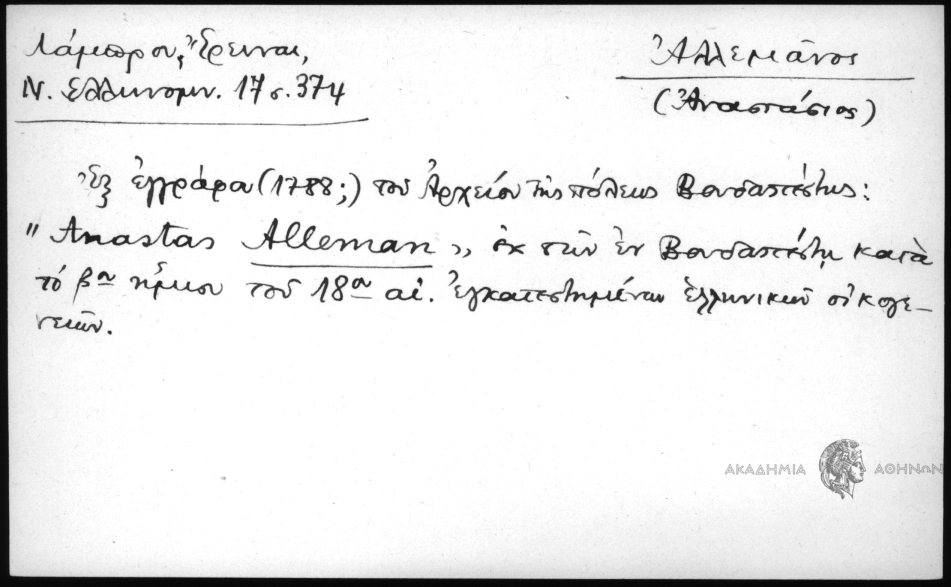 Λάμπρου, Ἔρευναι,
Ν. Ἑλληνομν. 17 σ. 374
Ἀλλεμᾶνος
(Ἀναστάσιος)
Ἐξ ἐγγράφου (1788;) τοῦ Ἀρχείου τῆς πόλεως Βουδαπέστης:
"Anastas Alleman", ἐκ τῶν ἐν Βουδαπέστῃ κατὰ
τό βον ἥμισυ τοῦ 18ου αἰ. ἐγκατεστημένων ἑλληνικῶν οἰκογε–
νειῶν.
ΑΚΑΔΗΜΙΑ ΑΘΗΝΩΝ